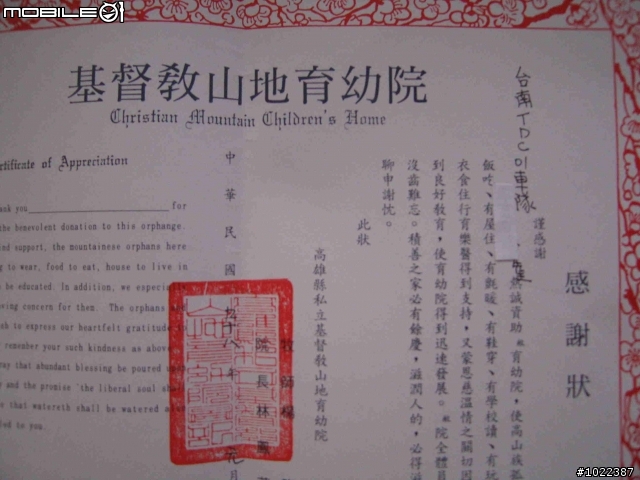 mobile01
基督教山地育幼院
Christian Mountain Children's Home
台南TDC01車隊
感謝狀
謹感謝
熱誠資助 育幼院，使高山族孤
飯吃、有屋住、有氈暖、有鞋穿、有學校讀、有玩
衣食住行育樂醫得到支持，又蒙恩慈溫情之關切因
到良好教育，使育幼院得到迅速發展。 院全體員
沒齒難忘。積善之家必有餘慶，滋潤人的，必得滋
聊申謝忱。
此狀
高雄縣私立基督教山地育幼院
牧師楊
院長林
中華民國九十八年 元月
ertificate of Appreciation
ank you for
the benevolent donation to this orphange
nd support, the mountainese orphane here
g to wear, food to eat, house to live in
be educated. In addition, we especially
wing concern for them. The orphans an
sh to express our heartfelt gratitude to
remember your such kindness as above
ray that abundant blessing be poured upo
and the promise 'the liberal soul shall
e that watereth shall be watered also
led to you.
#1022387